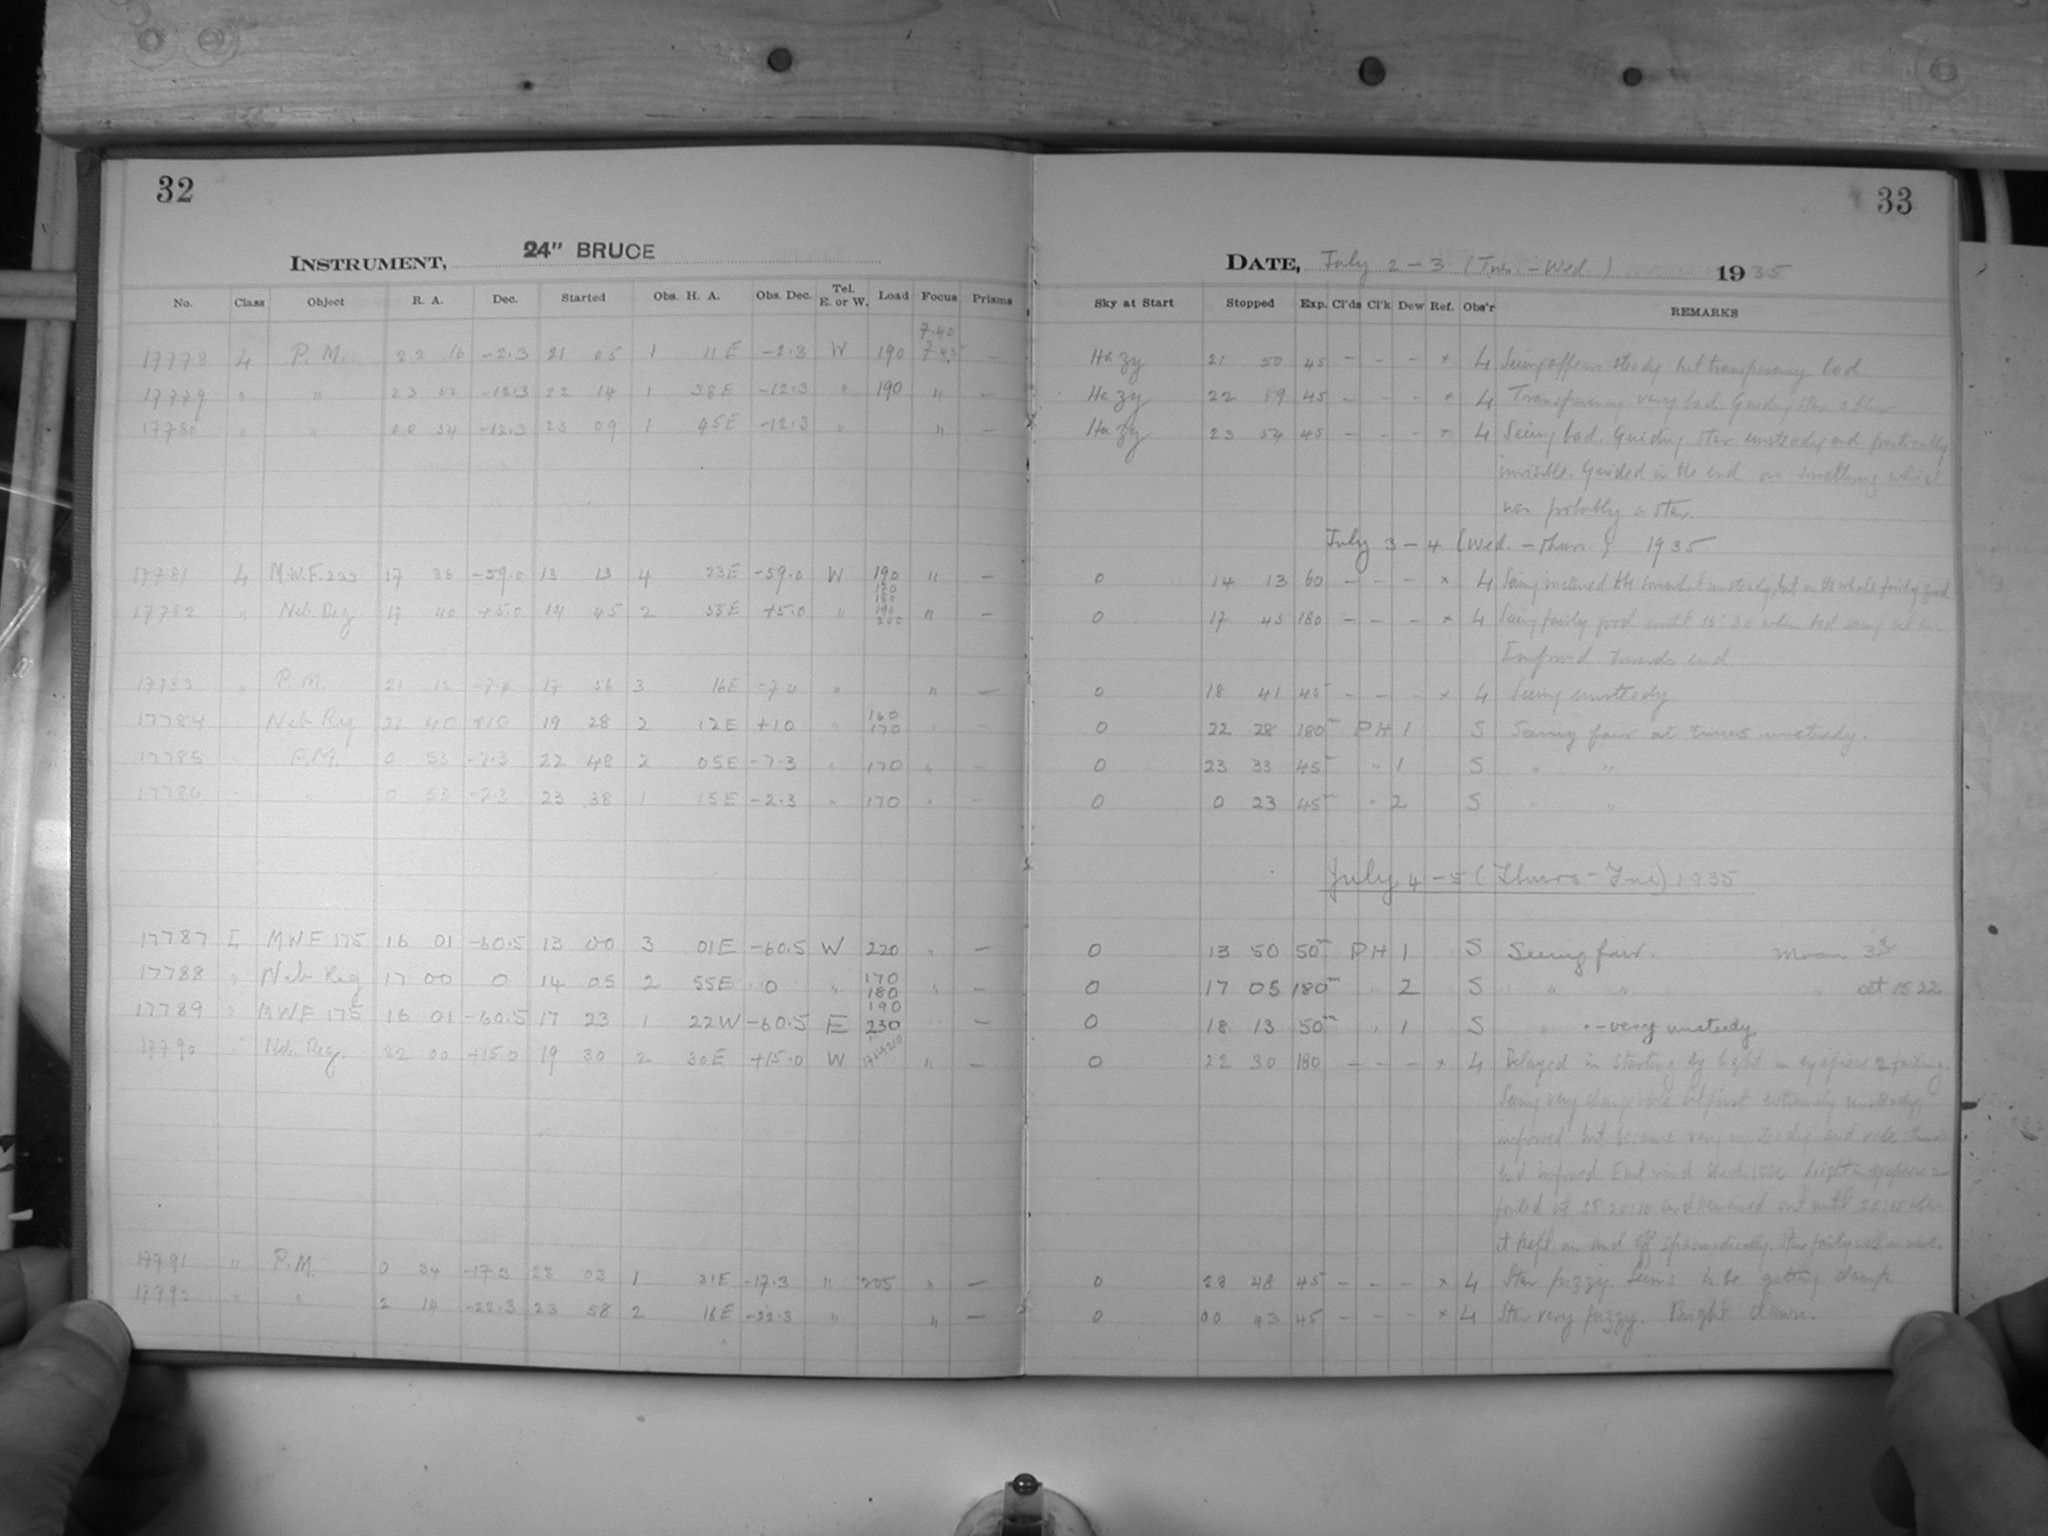 32
33
INSTRUMENT, 24" BRUCE
DATE, July 2-3 (Tues. - Wed.) 1935
No. Class Object R. A. Dec. Started Obs. H. A. Obs. Dec. Tel. E. or W. Load Focus Prisms Sky at Start Stopped Exp. Cl'ds Cl'k Dew Ref. Obs'r REMARKS
7.40
17778 L P.M. 22 16 -2.3 21 05 1 11E -2.3 W 190 7.45 — Hazy 21 50 45 - - - × 4 Seeing appears steady but transparency bad
17779 " " 23 52 -12.3 22 14 1 38E -12.3 " 190 " — Hazy 22 59 45 - - - × 4 Transparency very bad. Guiding star a blur
17780 " " 00 54 -12.3 23 09 1 45E -12.3 " " — Hazy 23 54 45 - - - × 4 Seeing bad. Guiding star unsteady and practically
invisible. Guided in the end on something which
was probably a star.
July 3-4 (Wed. - Thurs.) 1935
17781 L M.W.F. 233 17 36 -59.0 13 13 4 23E -59.0 W 190 " — 0 14 13 60 - - - × 4 Seeing inclined to be somewhat unsteady, but on the whole fairly good
17782 " Neb. Reg 17 40 +5.0 14 45 2 55E +5.0 " 190 200 " — 0 17 45 180 - - - × 4 Seeing fairly good until 15:30 when bad seeing set in
Improved towards end
17783 " P.M. 21 12 17 56 3 16E " " — 0 18 41 45 - - - × 4 Seeing unsteady.
17784 Neb Reg 21 40 +10 19 28 2 12E +10 160 170 0 22 28 180m PH 1 S Seeing fair at times unsteady.
17785 P.M. 0 53 -7.3 22 48 2 05E -7.3 " 170 " 0 23 33 45m " 1 S " "
17786 " 0 53 -2.3 23 38 1 15E -2.3 " 170 " — 0 0 23 45m " 2 S " "
July 4-5 (Thurs - Fri) 1935
17787 L MWF 175 16 01 -60.5 13 00 3 01E -60.5 W 220 " — 0 13 50 50m PH 1 S Seeing fair. Moon 3d
17788 " Neb Reg 17 00 0 14 05 2 55E 0 " 170 180 190 " — 0 17 05 180m " 2 S " " set 15 22
17789 " MWF 175 16 01 -60.5 17 23 1 22W -60.5 E 230 " — 0 18 13 50m " 1 S " " - very unsteady
17790 " Neb. Reg. 22 00 +15.0 19 30 2 30E +15.0 W " — 0 22 30 180 - - - × 4 Delayed in starting by light in eyepiece 2 failing.
Seeing very changeable. At first extremely unsteady,
improved but became very unsteady and
end improved East wind
failed at and remained out until
it kept on and off spasmodically. Star fairly well in view.
17791 " P.M. 0 34 -17.3 23 03 1 31E -17.3 " 205 " — 0 23 48 45 - - - × 4 Star fuzzy. Seems to be getting damp
17792 " " 2 14 -22.3 23 58 2 16E -22.3 " " — 0 00 43 45 - - - × 4 Star very fuzzy. Bright dawn.